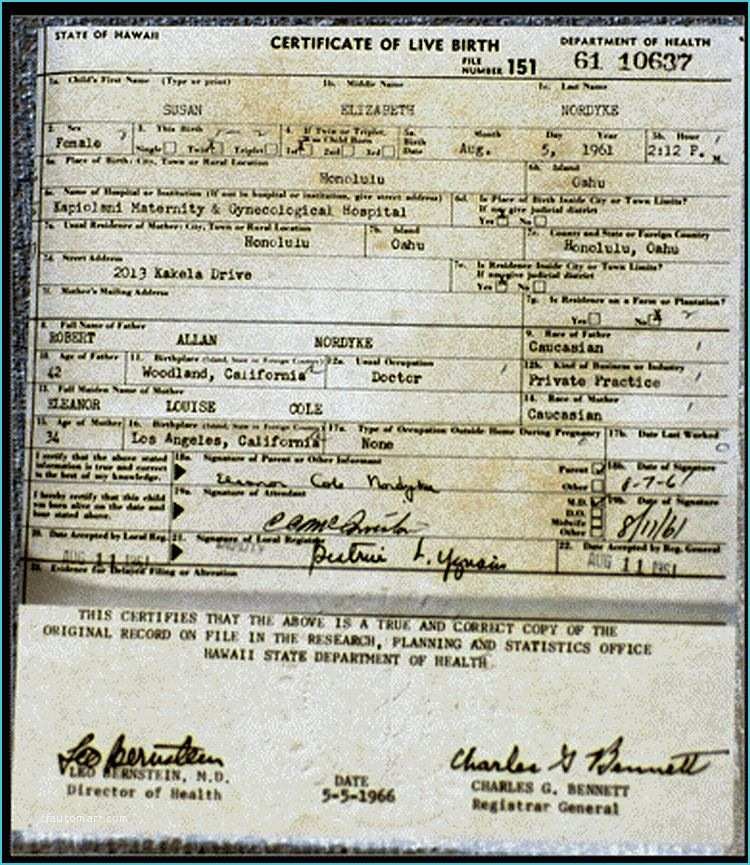 STATE OF HAWAII
CERTIFICATE OF LIVE BIRTH
DEPARTMENT OF HEALTH
FILE NUMBER 151
61 10637
1a. Child's First Name (Type or print) 1b. Middle Name 1c. Last Name
SUSAN ELIZABETH NORDYKE
2. Sex 3. This Birth 4. If Twin or Triplet, Was Child Born 5a. Birth Date Month Day Year 5b. Hour
Female Single Twin Triplet 1st 2nd 3rd Aug. 5, 1961 2:12 P. M.
6a. Place of Birth: City, Town or Rural Location 6b. Island
Honolulu Oahu
6c. Name of Hospital or Institution (If not in hospital or institution, give street address) 6d. Is Place of Birth Inside City or Town Limits? If no, give judicial district
Kapiolani Maternity & Gynecological Hospital Yes No
7a. Usual Residence of Mother: City, Town or Rural Location 7b. Island 7c. County and State or Foreign Country
Honolulu Oahu Honolulu, Oahu
7d. Street Address 7e. Is Residence Inside City or Town Limits? If no, give judicial district
2013 Kakela Drive Yes No
7f. Mother's Mailing Address 7g. Is Residence on a Farm or Plantation?
Yes No
8. Full Name of Father 9. Race of Father
ROBERT ALLAN NORDYKE Caucasian
10. Age of Father 11. Birthplace (Island, State or Foreign Country) 12a. Usual Occupation 12b. Kind of Business or Industry
42 Woodland, California Doctor Private Practice
13. Full Maiden Name of Mother 14. Race of Mother
ELEANOR LOUISE COLE Caucasian
15. Age of Mother 16. Birthplace (Island, State or Foreign Country) 17a. Type of Occupation Outside Home During Pregnancy 17b. Date Last Worked
34 Los Angeles, California None
I certify that the above stated information is true and correct to the best of my knowledge.
18a. Signature of Parent or Other Informant Parent Other 18b. Date of Signature
Eleanor Cole Nordyke 8-7-61
I hereby certify that this child was born alive on the date and hour stated above.
19a. Signature of Attendant M.D. D.O. Midwife Other 19b. Date of Signature
8/11/61
20. Date Accepted by Local Reg. 21. Signature of Local Registrar 22. Date Accepted by Reg. General
AUG 11 1961 AUG 11 1961
23. Evidence for Delayed Filing or Alteration
THIS CERTIFIES THAT THE ABOVE IS A TRUE AND CORRECT COPY OF THE
ORIGINAL RECORD ON FILE IN THE RESEARCH, PLANNING AND STATISTICS OFFICE
HAWAII STATE DEPARTMENT OF HEALTH
Leo Bernstein Charles G Bennett
LEO BERNSTEIN, M.D. DATE CHARLES G. BENNETT
Director of Health 5-5-1966 Registrar General
cfautomart.com